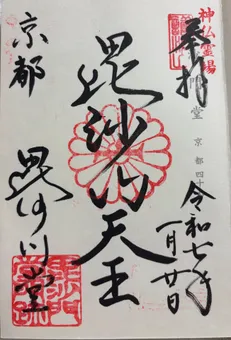 神仏霊場
奉拝
門
堂
京都四十
令和七年
一月廿日
毘沙門天王
京都
毘沙門堂